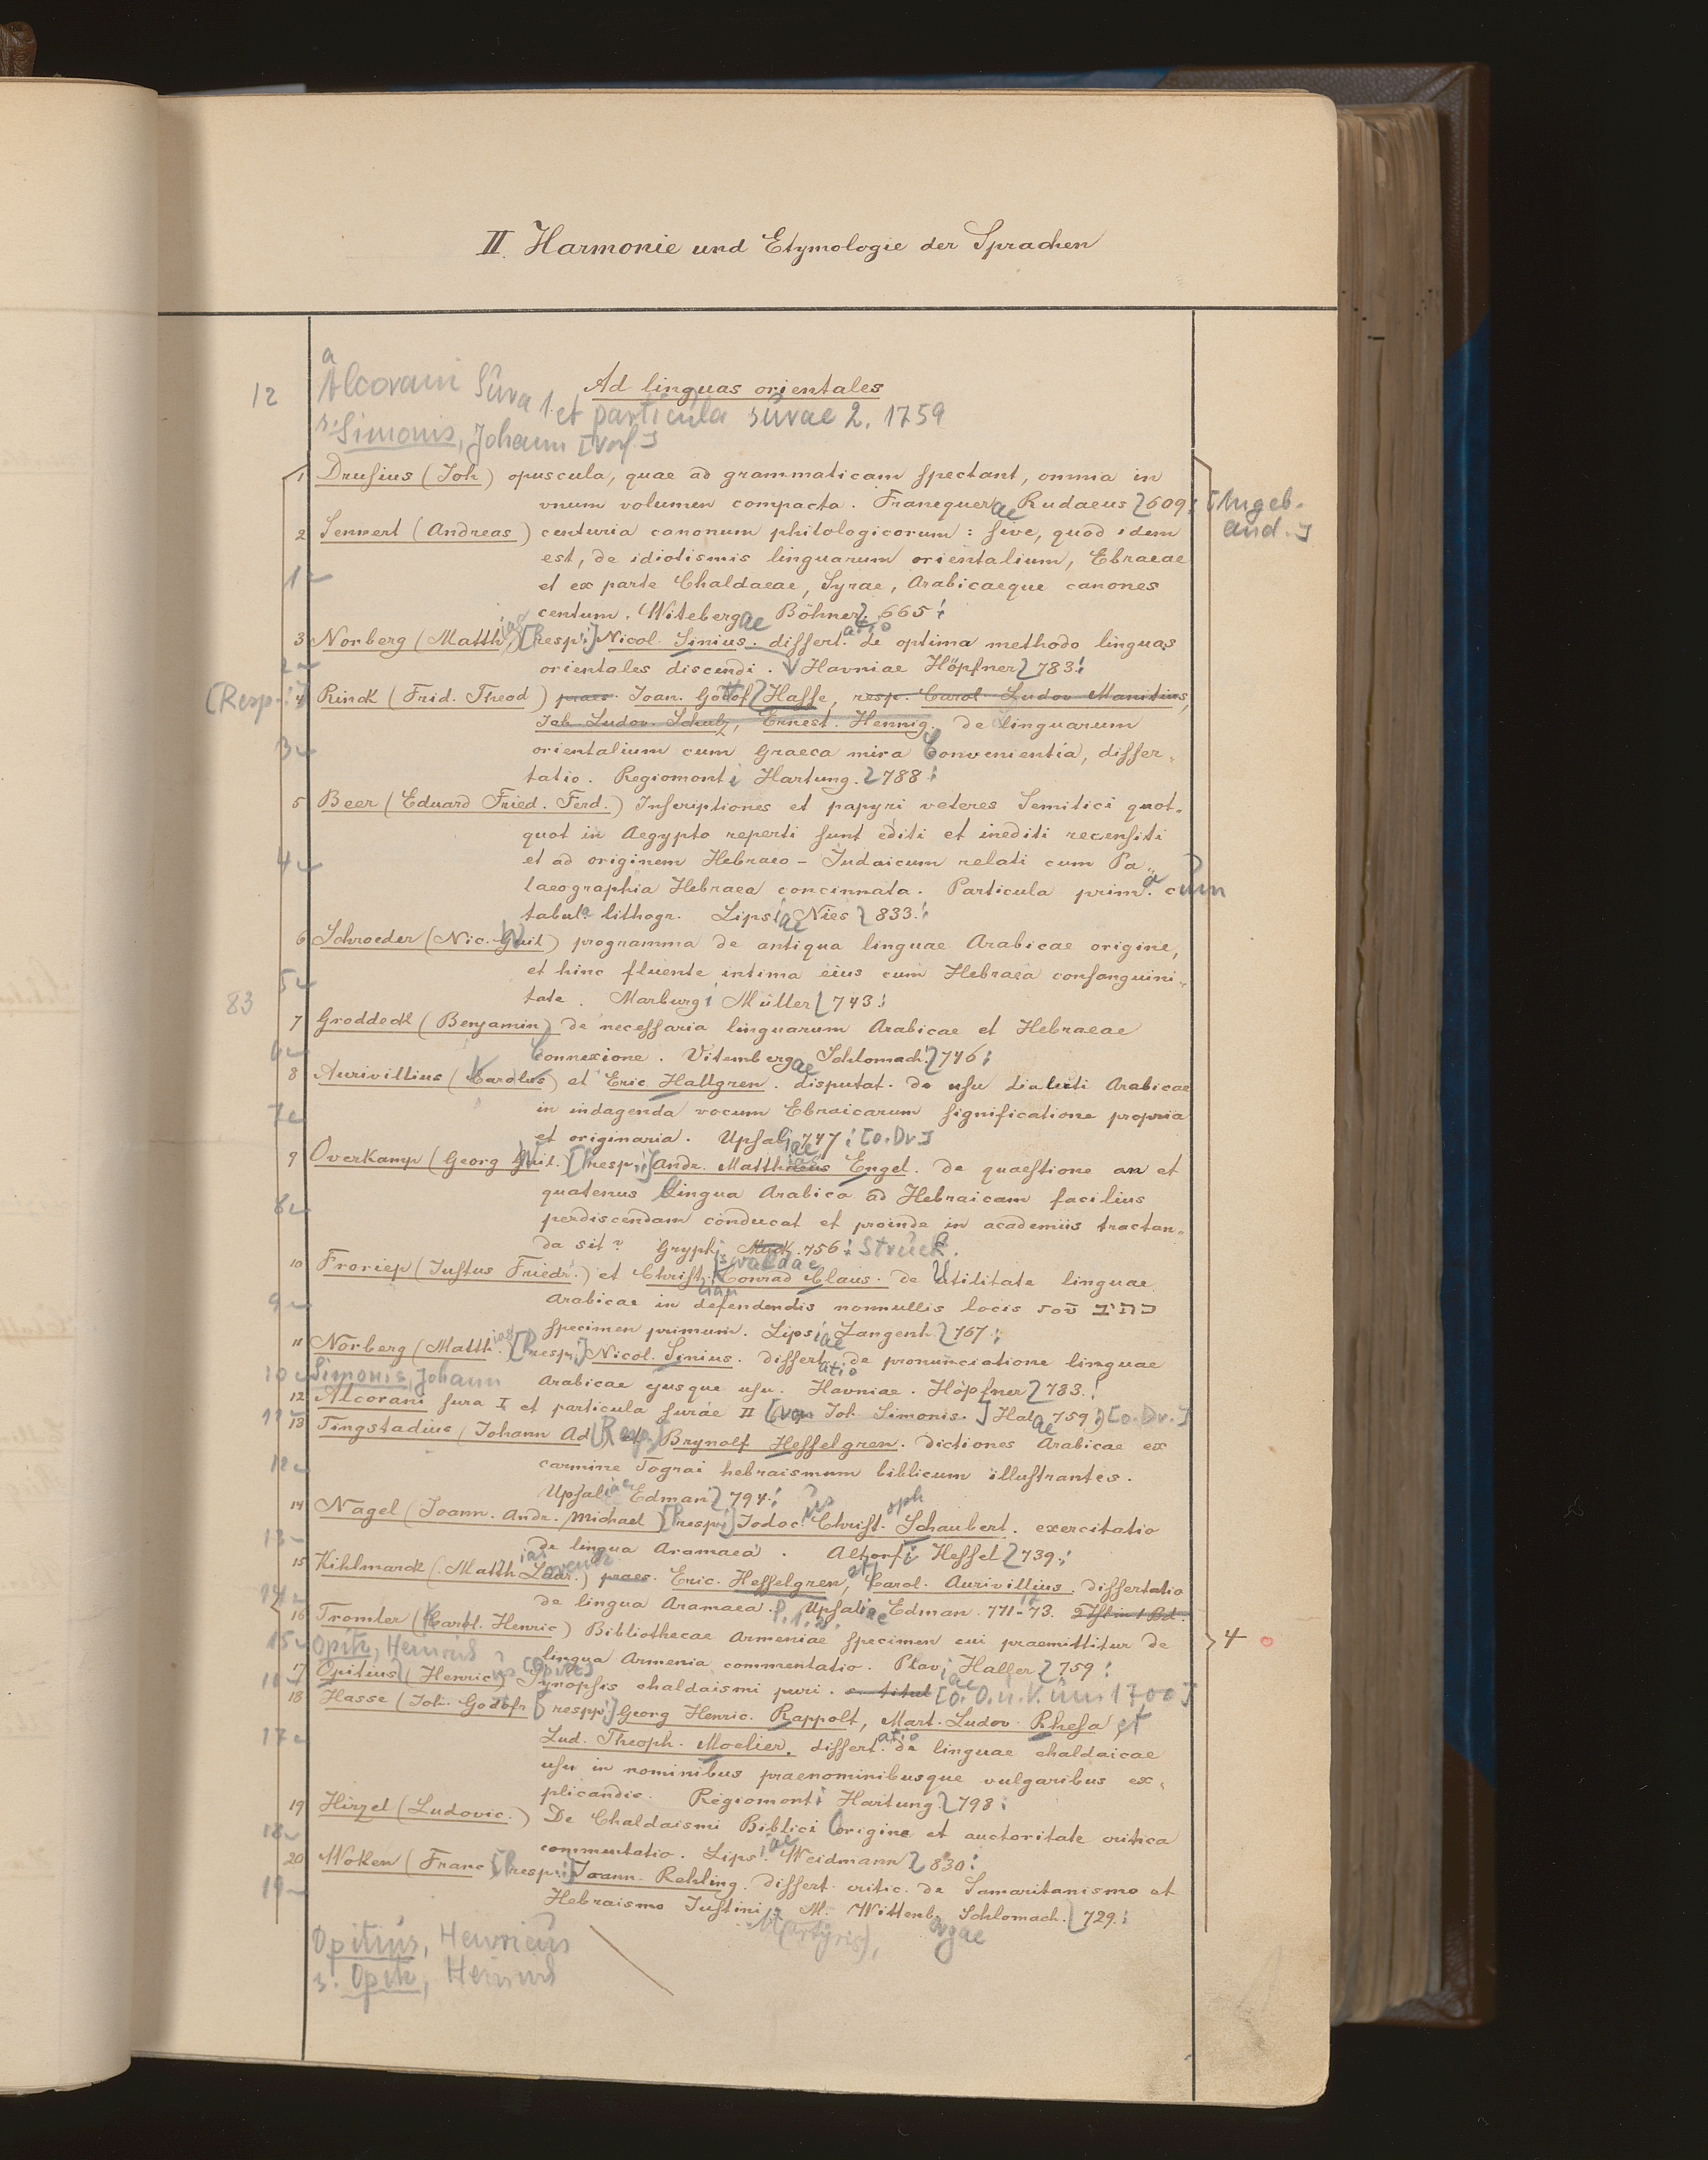 II. Harmonie und Etymologie der Sprachen
12 Alcorani Sûra 1. et particula sûrae 2. 1759
Ad linguas orientales
s. Simonis, Johann [Verf.]
1 Drusius (Joh) opuscula, quae ad grammaticam spectant, omnia in
vnum volumen compacta. Franequerae Rudaeus 609. [Angeb.
and.]
2 Sennert (Andreas) centuria canonum philologicorum: sive, quod idem
est, de idiotismis linguarum orientalium, Ebraeae
1 et ex parte Chaldaeae, Syrae, Arabicaeque canones
centum. Witebergae Böhner 665.
3 Norberg (Matthias) [Resp.] Nicol. Sinius. dissertatio de optima methodo linguas
2 orientales discendi. Havniae Höpfner 783.
[Resp.] 4 Rinck (Frid. Theod) praes. Joan. Gottof Hasse, resp. Carol. Ludov. Manitius,
Joh. Ludov. Schulz, Ernest. Hennig. de linguarum
3 orientalium cum Graeca mira Convenientia, disser-
tatio. Regiomonti Hartung. 788.
5 Beer (Eduard Fried. Ferd.) Inscriptiones et papyri veteres Semitici quot-
quot in Aegypto reperti sunt editi et inediti recensiti
4 et ad originem Hebraeo-Judaicum relati cum Pa-
laeographia Hebraea concinnata. Particula prima cum
tabul. lithogr. Lipsiae Nies 833.
6 Schroeder (Nic. Wil) programma de antiqua linguae Arabicae origine,
5 et hinc fluente intima eius cum Hebraea consanguini-
83 tate. Marburgi Müller 743.
7 Groddeck (Benjamin) de necessaria linguarum Arabicae et Hebraeae
6 Connexione. Vitembergae Schlomach. 746.
8 Aurivillius (Karl) et Eric. Hallgren. disputat. de usu dialecti Arabicae
7 in indagenda vocum Ebraicarum significatione propria
et originaria. Upsaliae 747. [o. Dr.]
9 Overkamp (Georg Wil.) [Resp.] Andr. Matthias Engel. de quaestione an et
8 quatenus Lingua Arabica ad Hebraicam facilius
perdiscendam conducat et proinde in academiis tractan-
da sit? Gryphiswaldae Struck. 756.
10 Froriep (Iustus Friedr.) et Christian Konrad Claus. de Utilitate linguae
9 Arabicae in defendendis nonnullis locis כתיב
specimen primum. Lipsiae Langenh 767.
11 Norberg (Matthias) [Resp.] Nicol. Sinius. dissertatio de pronunciatione linguae
10 Simonis, Johann Arabicae ejusque usu. Havniae. Höpfner 783.
12 Alcorani sura I et particula surae II [von Joh Simonis.] Halae 759. [o. Dr.]
11
13 Tingstadius (Johann Ad) [Resp.] et Brynolf Hesselgren. dictiones Arabicae ex
12 carmine Tograi hebraismum biblicum illustrantes.
Upsaliae Edman 794.
14 Nagel (Joann. Andr. Michael) [Resp.] Jodoc. Christoph Schaubert. exercitatio
13 de lingua Aramaea. Altorfi Hessel 739.
15 Kihlmarck (Matthias Laur.) praes. Eric. Hesselgren, et Carol. Aurivillius. dissertatio
14 de lingua Aramaea. P. 1. 2. Upsaliae Edman. 771-73. 2 Thl in 1 Bd.
16 Tromler (Karl. Henric) Bibliothecae Armeniae specimen cui praemittitur de
15 Opitz, Heinrich lingua Armenia commentatio. Plaviae Haller 759. 4
17 Opitius (Henricus) [Opitz] Synopsis chaldaismi puri. s. titul [o. O. u. V. um 1700]
16
18 Hasse (Joh. Gottfr [respp.] Georg Henric. Rappolt, Mart. Ludov. Rhesa et
17 Lud. Theoph. Moelier. dissertatio de linguae chaldaicae
usu in nominibus praenominibusque vulgaribus ex-
plicandis. Regiomonti Hartung 798.
19 Hirzel (Ludovic.) De Chaldaismi Biblici Origine et auctoritate critica
18 commentatio. Lipsiae Weidmann 830.
20 Woken (Franc) [Resp.] Joann. Rehling. dissert. critic. de Samaritanismo et
19 Hebraismo Iustini M. Wittenb. Schlomach. 729.
M(artyris), ergae
Opitius, Henricus
s. Opitz, Heinrich